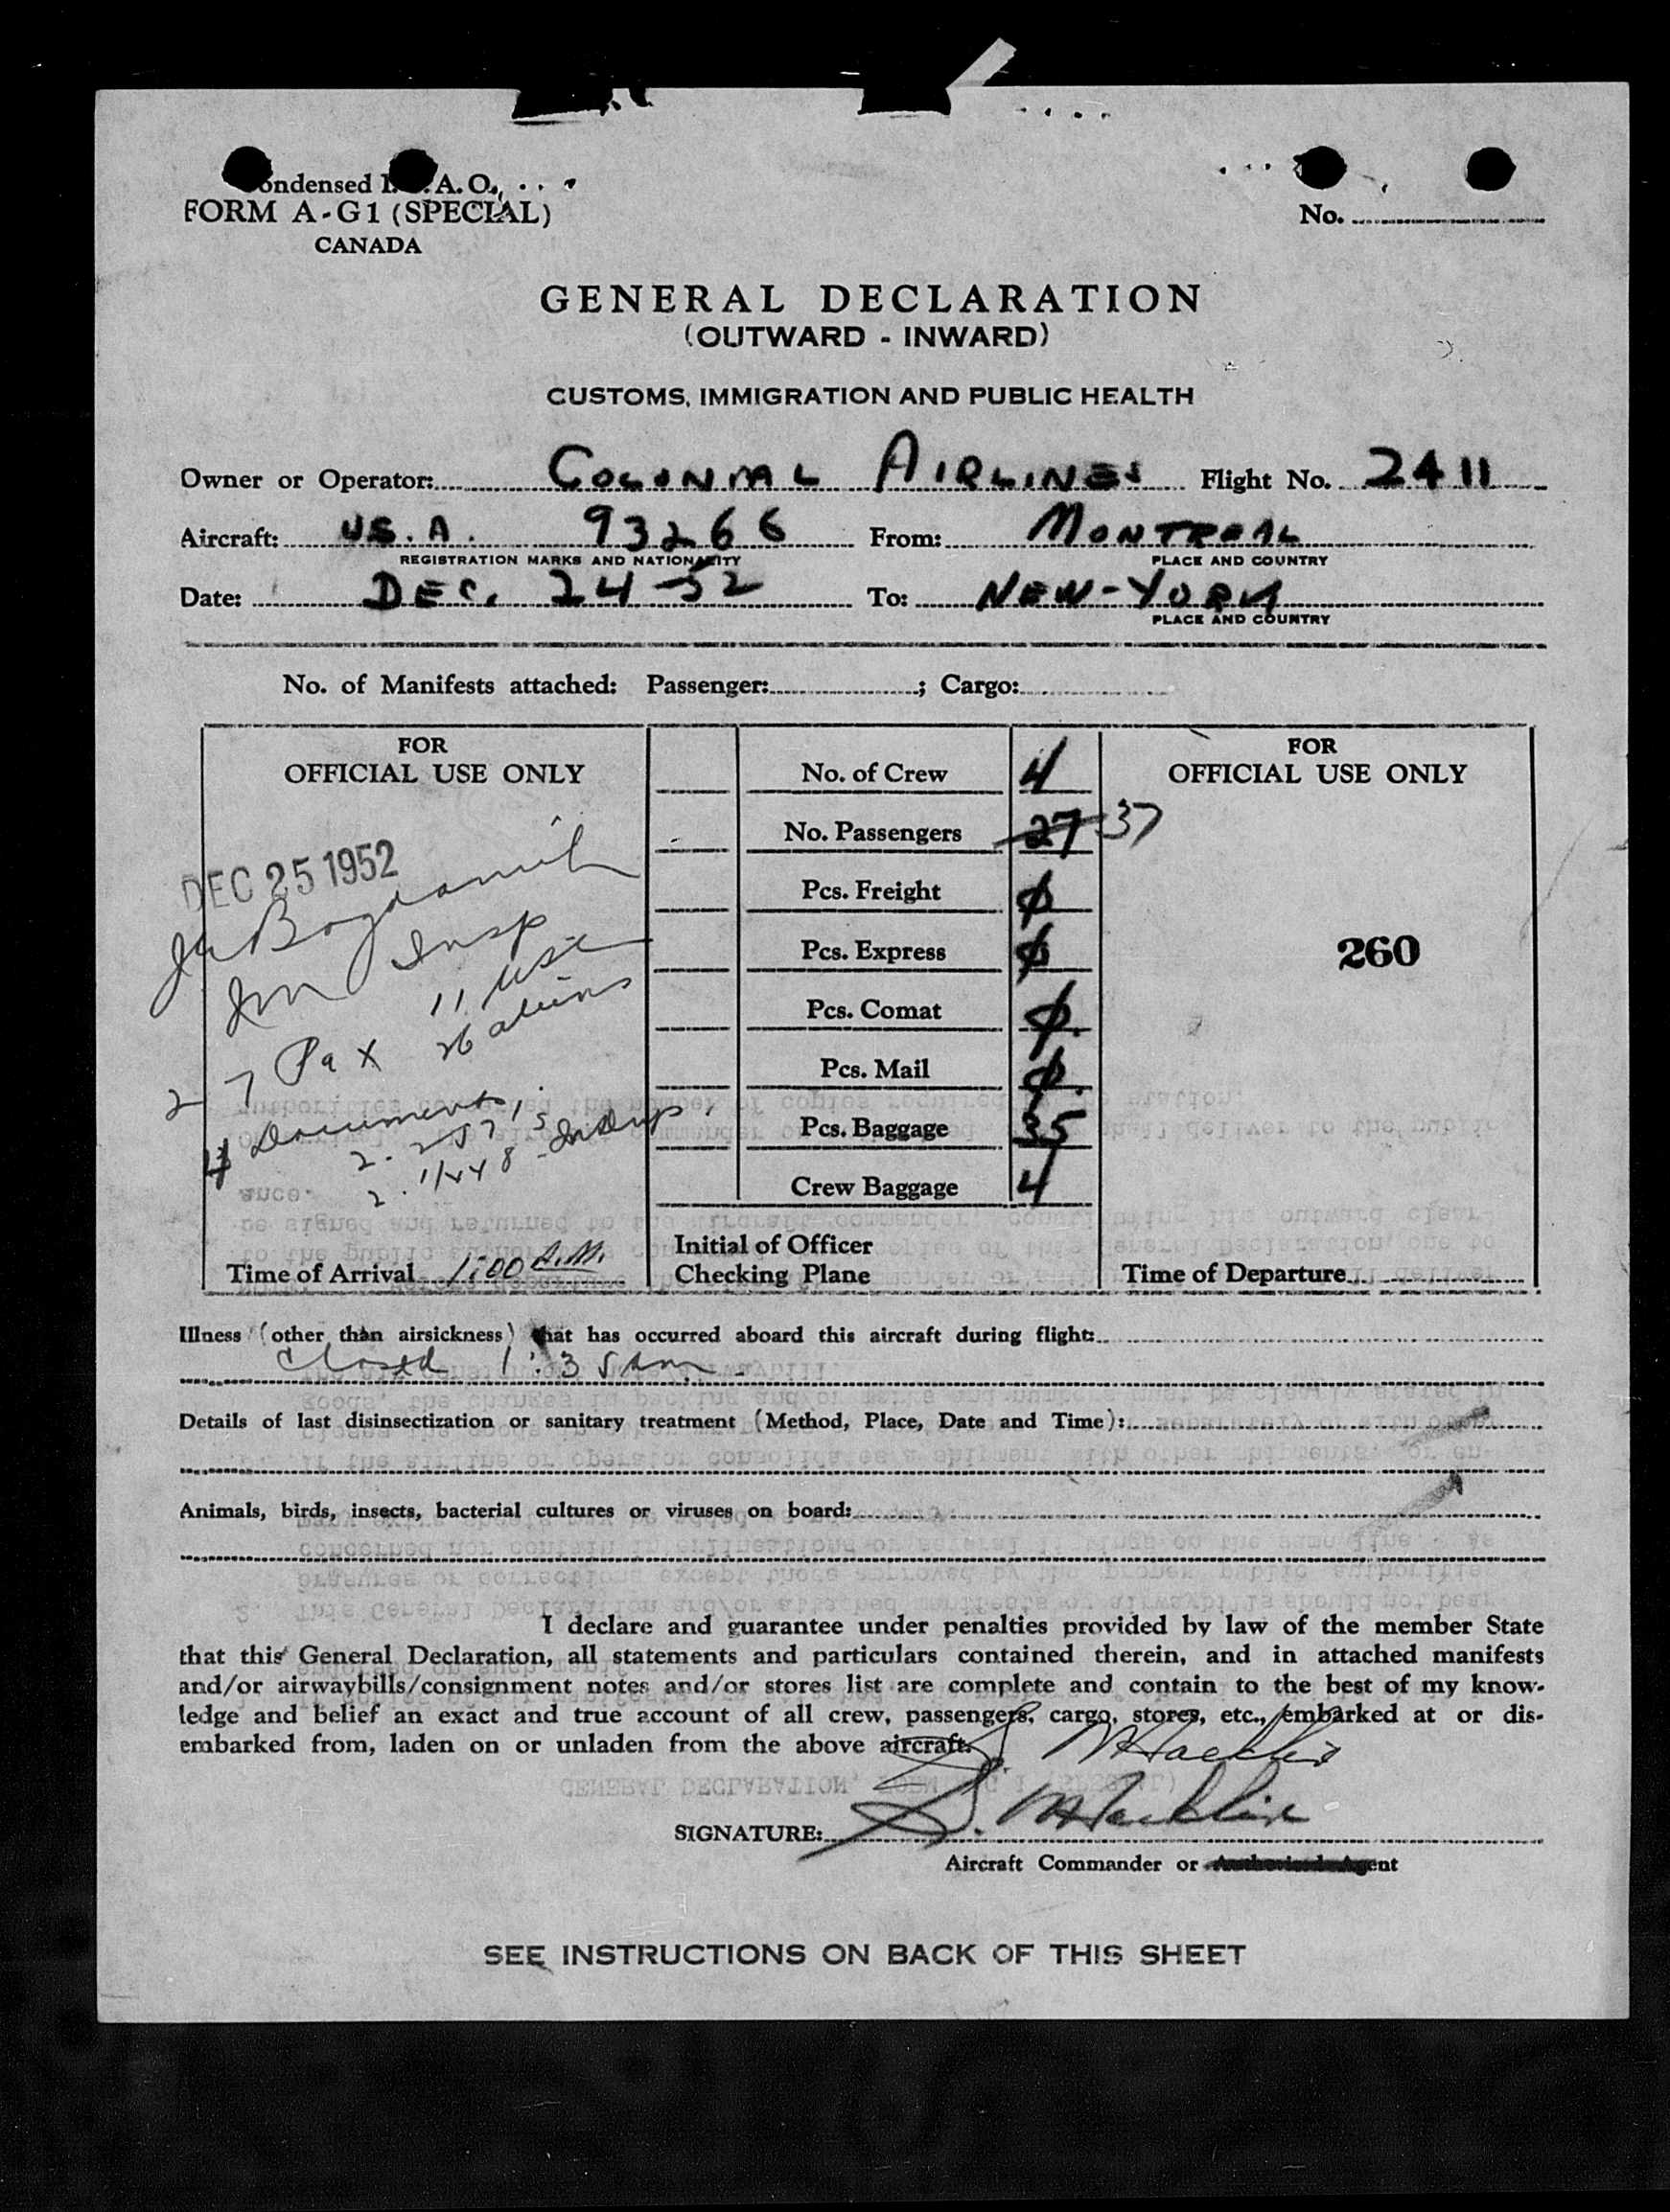 Condensed I. A. O.
FORM A-G1 (SPECIAL)
CANADA
No.
GENERAL DECLARATION
(OUTWARD - INWARD)
CUSTOMS, IMMIGRATION AND PUBLIC HEALTH
Owner or Operator: COLONIAL AIRLINES Flight No. 2411
Aircraft: U.S.A. 93266 From: MONTREAL
REGISTRATION MARKS AND NATIONALITY PLACE AND COUNTRY
Date: DEC. 24-52 To: NEW-YORK
PLACE AND COUNTRY
No. of Manifests attached: Passenger: ; Cargo:
FOR
OFFICIAL USE ONLY
DEC 25 1952
Im Insp
11 USC
27 Pax 26 aliens
4 Documents
Time of Arrival 1:00 A.M.
No. of Crew 4
No. Passengers 27 37
Pcs. Freight ϕ
Pcs. Express ϕ
Pcs. Comat ϕ.
Pcs. Mail ϕ.
Pcs. Baggage 35
Crew Baggage 4
Initial of Officer
Checking Plane
FOR
OFFICIAL USE ONLY
260
Time of Departure
Illness (other than airsickness) that has occurred aboard this aircraft during flight:
Closed 1:35 am
Details of last disinsectization or sanitary treatment (Method, Place, Date and Time):
Animals, birds, insects, bacterial cultures or viruses on board:
I declare and guarantee under penalties provided by law of the member State
that this General Declaration, all statements and particulars contained therein, and in attached manifests
and/or airwaybills/consignment notes and/or stores list are complete and contain to the best of my know-
ledge and belief an exact and true account of all crew, passengers, cargo, stores, etc., embarked at or dis-
embarked from, laden on or unladen from the above aircraft.
SIGNATURE:
Aircraft Commander or Authorized Agent
SEE INSTRUCTIONS ON BACK OF THIS SHEET